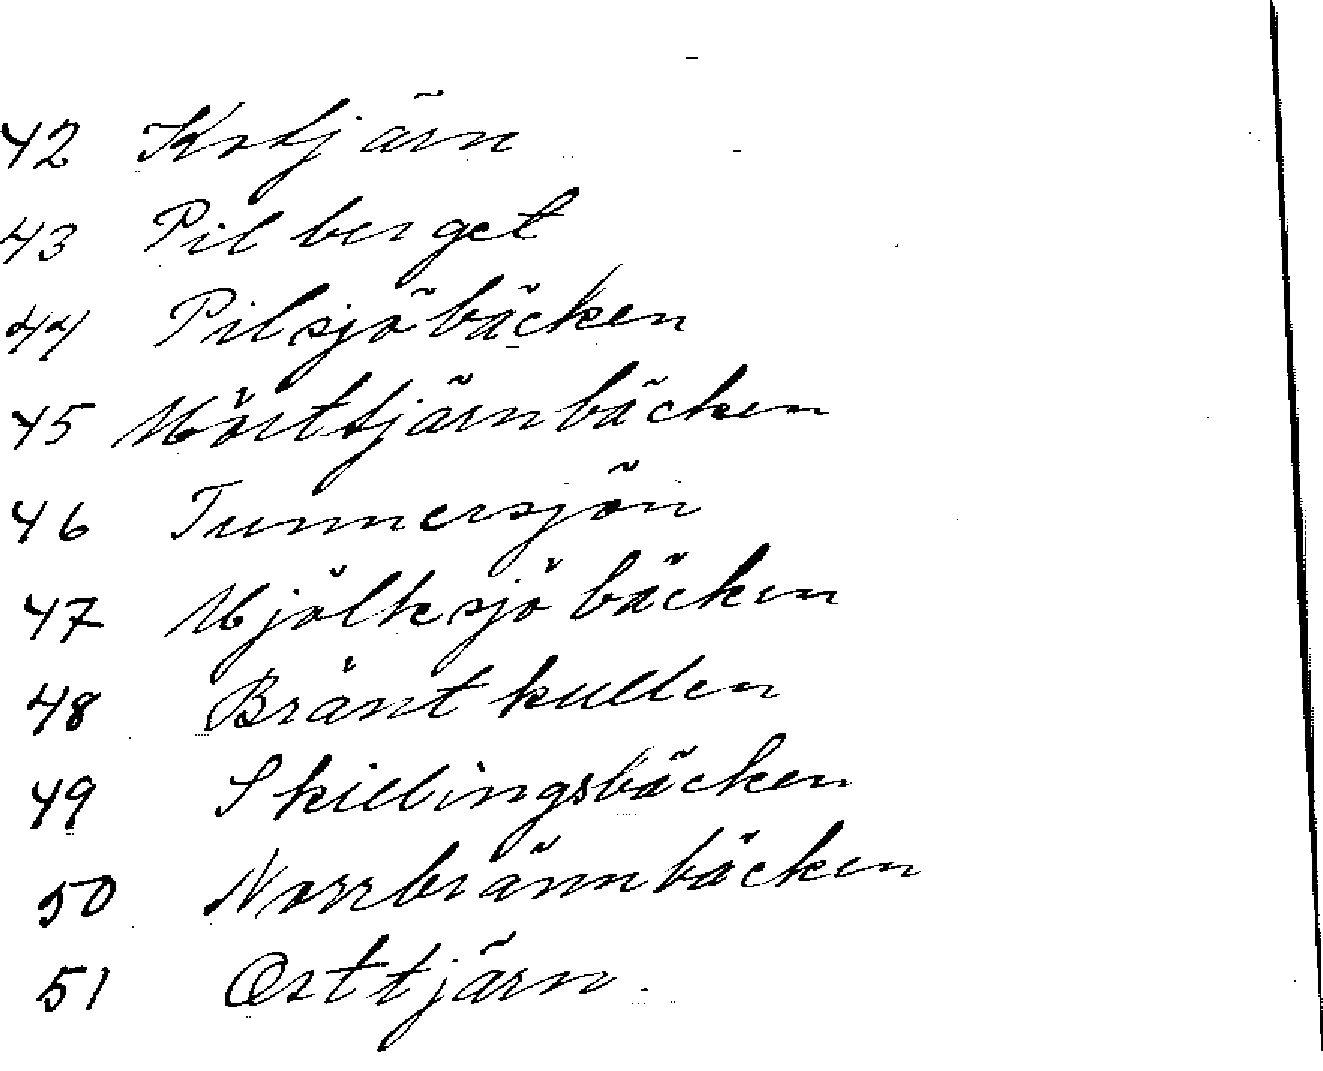 42 Kotjärn
43 Pilberget
44 Pilsjöbäcken
45 Mörttjärnbäcken
46 Tunnersjön
47 Mjölksjöbäcken
48 Bräntkullen
49 Skillingsbäcken
50 Norrbrännbäcken
51 Orttjärn